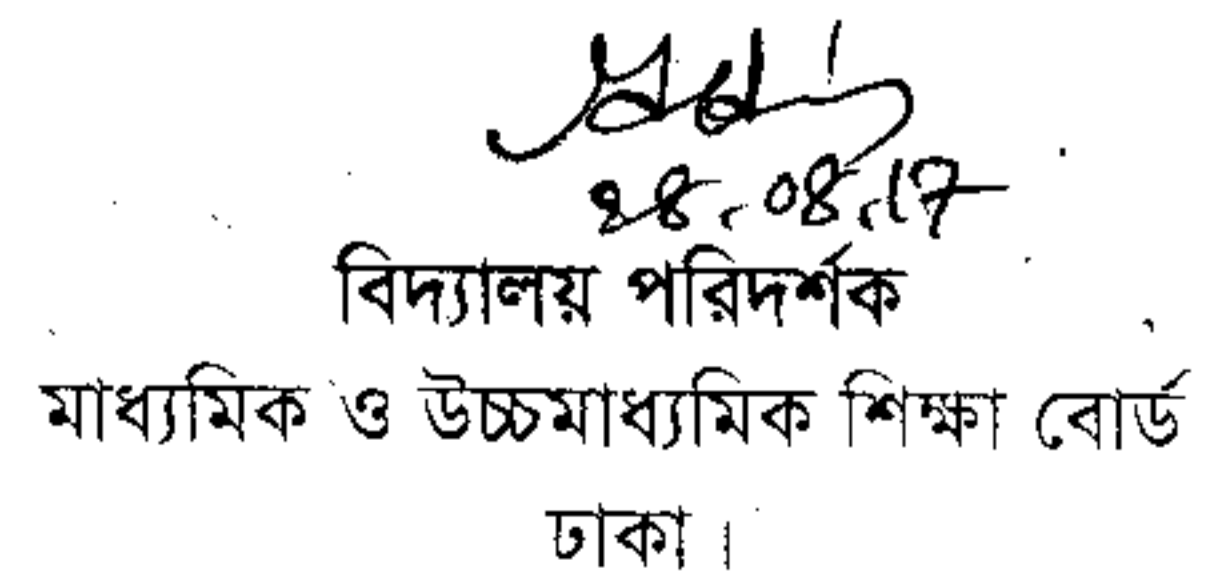 ২৪.০৪.১৭
বিদ্যালয় পরিদর্শক
মাধ্যমিক ও উচ্চমাধ্যমিক শিক্ষা বোর্ড
ঢাকা।